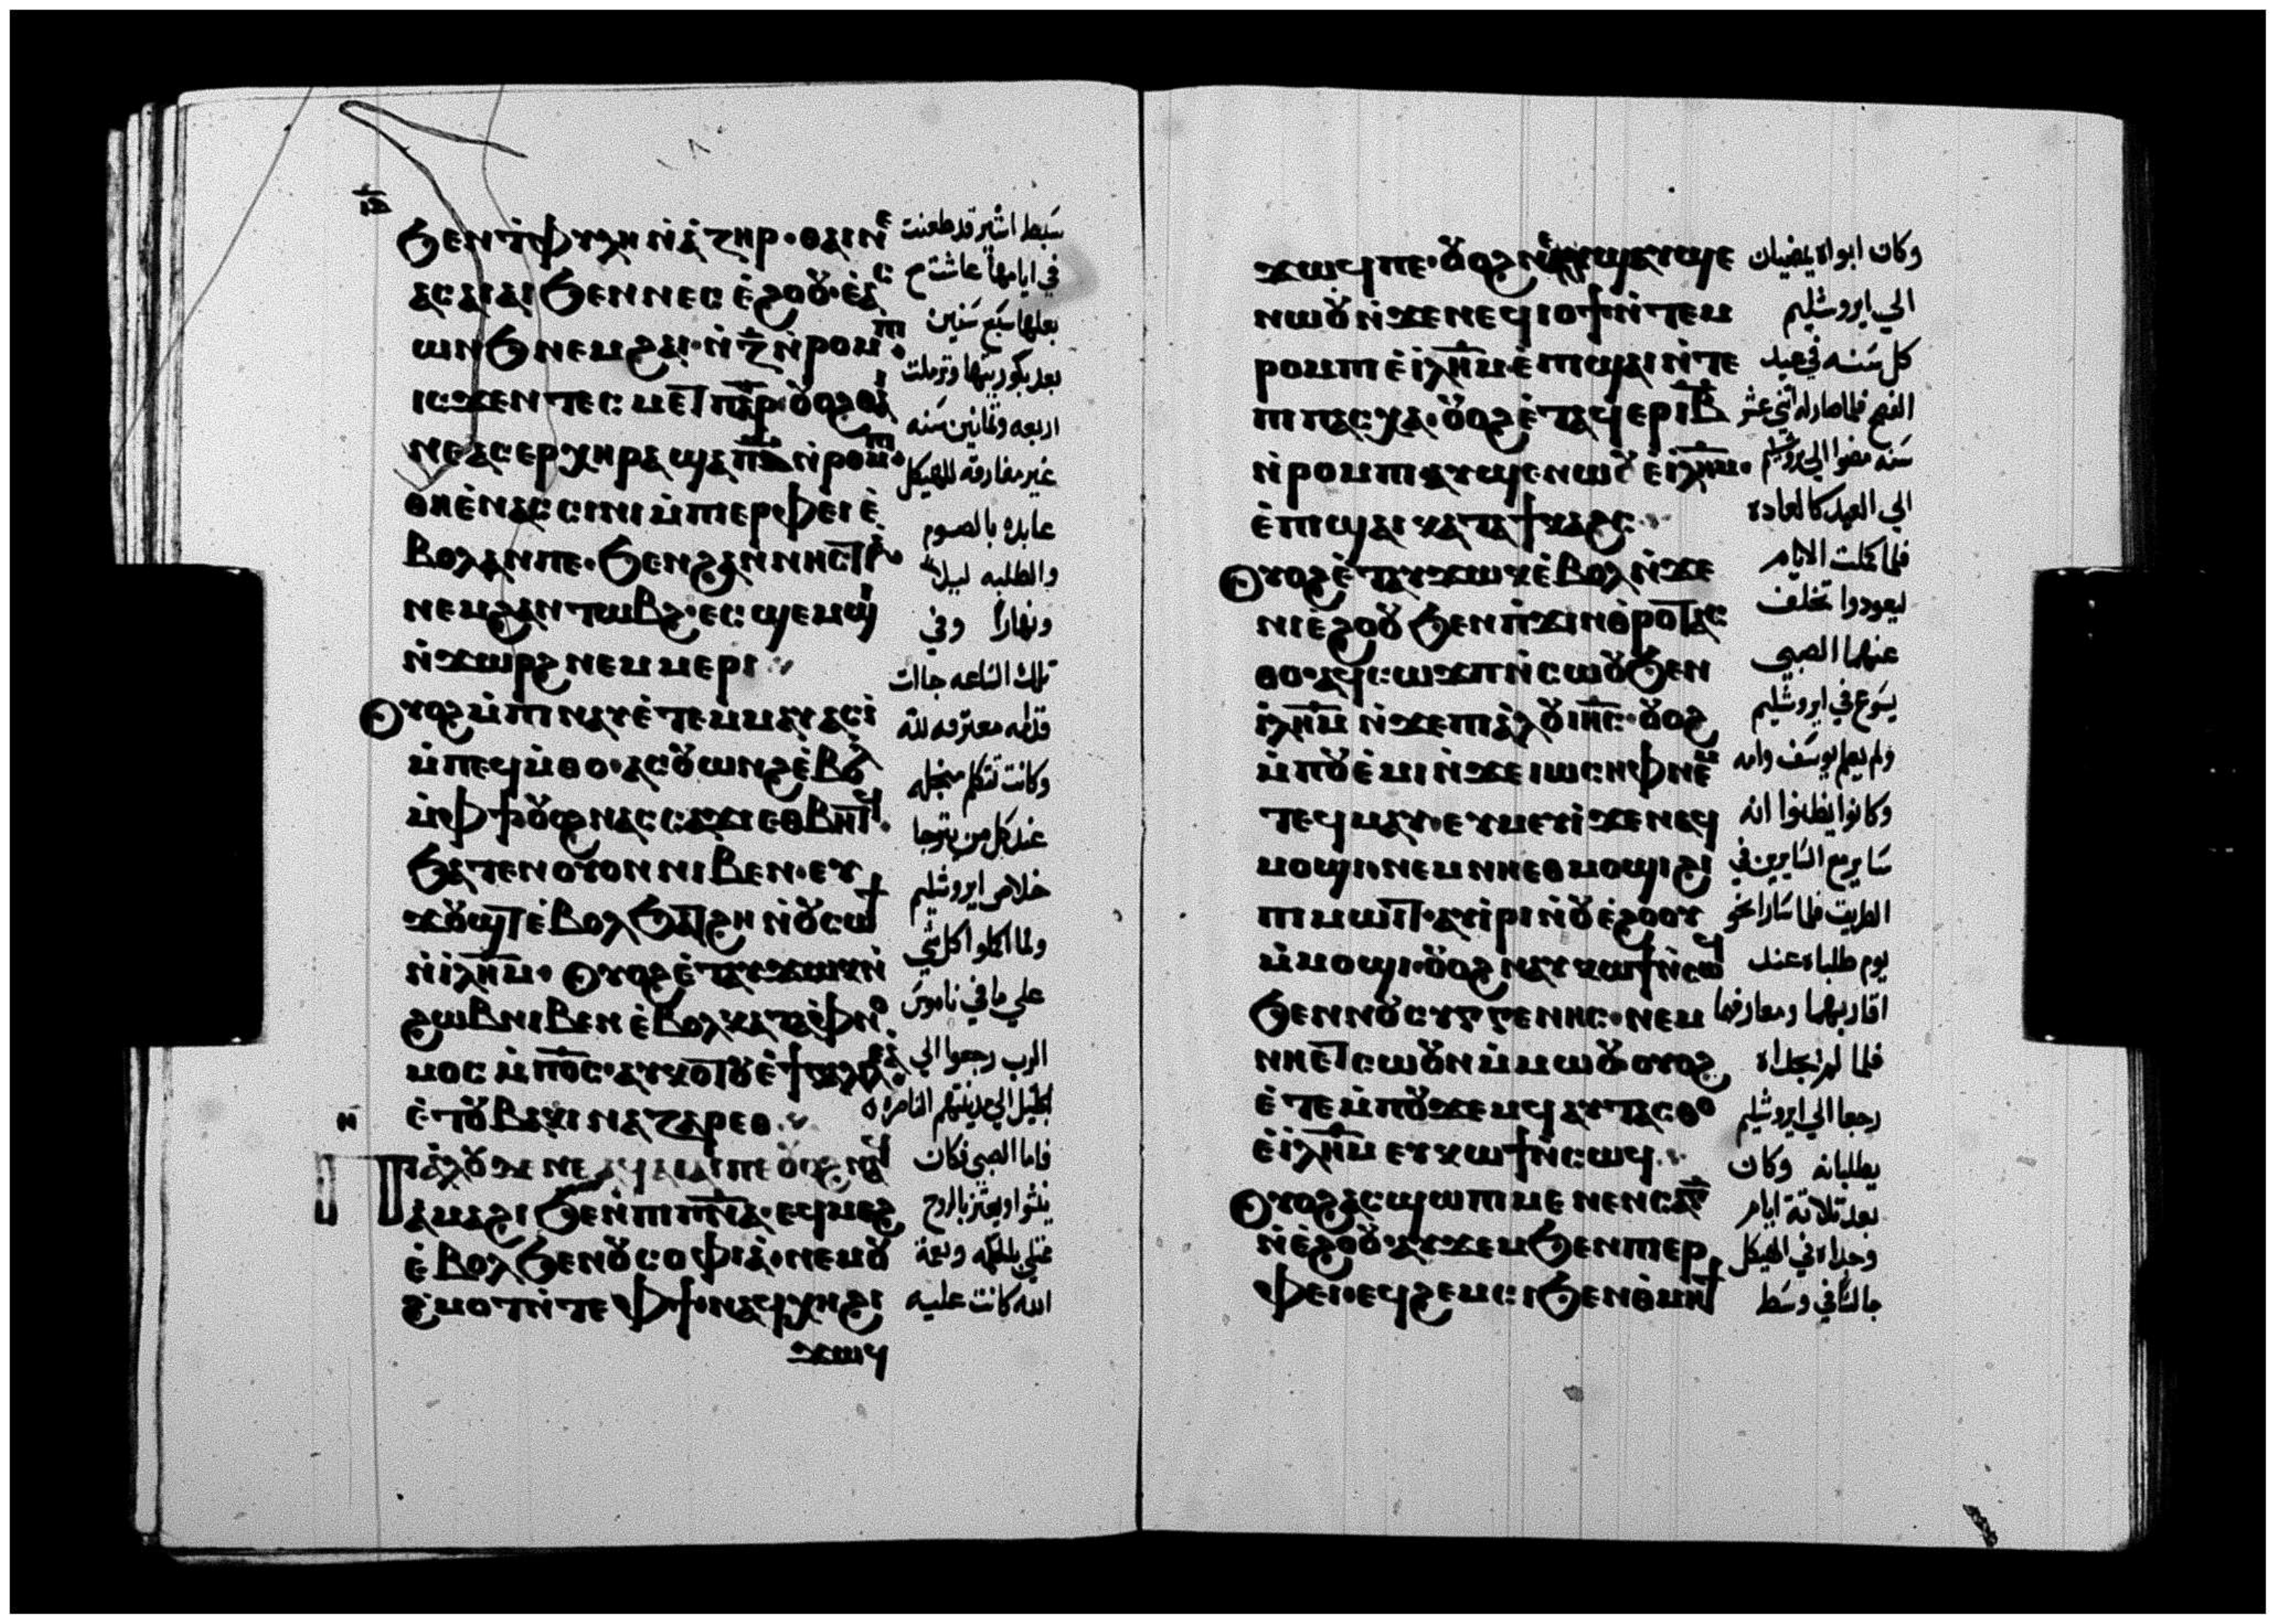 ⲓⲇ
ϧⲉⲛⲧ̀ⲫⲩⲗⲏ ⲛ̀ⲁ̀ⲥⲏⲣ · ⲑⲁⲓⲛⲉ̀
ⲁⲥⲁⲓⲁⲓ ϧⲉⲛⲛⲉⲥ ⲉ̀ϩⲟⲟⲩ · ⲉ̀ⲁⲥ
ⲱⲛϧ ⲛⲉⲙϩⲁⲓ · ⲛ̀ⲍ̄ ⲛ̀ⲣⲟⲙⲡⲓ ·
ⲓⲥϫⲉⲛ ⲧⲉⲥ ⲙⲉⲧⲡⲁⲣ · ⲟⲩⲟϩ ⲑⲁⲓ
ⲛⲉⲁⲥⲉⲣⲭⲏⲣⲁ ϣⲁ ⲡ̄ⲇ̄ ⲛ̀ⲣⲟⲙⲡⲓ ·
ⲑⲏⲉ̀ⲛⲁⲥⲥⲓⲛⲓ ⲙ̀ⲡⲓⲉⲣⲫⲉⲓ ⲉ̀
ⲃⲟⲗⲁⲛⲡⲉ · ϧⲉⲛϩⲁⲛⲛⲏⲥⲧⲓⲁ̀ ·
ⲛⲉⲙϩⲁⲛⲧⲱⲃϩ · ⲉⲥϣⲉⲙϣⲓ
ⲛ̀ϫⲱⲣϩ ⲛⲉⲙ ⲙⲉⲣⲓ
ⲟⲩⲟϩ ⲙ̀ⲡⲓⲛⲁⲩ ⲉ̀ⲧⲉⲙⲙⲁⲩ ⲁⲥⲓ̀
ⲙ̀ⲡⲉϥⲙ̀ⲑⲟ · ⲁⲥⲟⲩⲱⲛϩ ⲉ̀ⲃⲟⲗ
ⲙ̀ⲫϯ ⲟⲩⲟϩ ⲛⲁⲥⲥⲁϫⲓ ⲉⲑⲃⲏⲧϥ ·
ϧⲁⲧⲉⲛ ⲟⲩⲟⲛ ⲛⲓⲃⲉⲛ · ⲉⲩ
ϫⲟⲩϣⲧ ⲉ̀ⲃⲟⲗ ϧⲁⲧϩⲏ ⲛ̀ⲟⲩⲥⲱϯ
ⲛ̀ⲓⲗⲏⲙ · ⲟⲩⲟϩ ⲉ̀ⲧⲁⲩϫⲱⲕ ⲛ̀
ϩⲱⲃ ⲛⲓⲃⲉⲛ ⲉ̀ⲃⲟⲗ ⲕⲁⲧⲁ ⲫⲛⲟ
ⲙⲟⲥ ⲙ̀ⲡⲟ̅ⲥ̅ · ⲁⲩⲕⲟⲧⲟⲩ ⲉ̀ϯⲅⲁⲗⲓⲗⲉⲁ̀ ·
ⲉ̀ⲧⲟⲩⲃⲁⲕⲓ ⲛⲁⲍⲁⲣⲉⲑ
ⲛ
ⲡⲓⲁ̀ⲗⲟⲩ ϫⲉ ⲛⲉ ⲁϥⲁⲓⲁⲓ ⲡⲉ ⲟⲩⲟϩ ⲛⲁϥ
ⲁⲙⲁϩⲓ ϧⲉⲛⲡⲓⲡ̄ⲛ̄ⲁ̄ · ⲉϥⲙⲉϩ
ⲉ̀ⲃⲟⲗ ϧⲉⲛⲟⲩⲥⲟⲫⲓⲁ̀ · ⲛⲉⲙ ⲟⲩ
ϩ̀ⲙⲟⲧ ⲛ̀ⲧⲉ ⲫϯ · ⲛⲁϥⲭⲏ ϩⲓ
ϫⲱϥ
سبط اشير قد طعنت
في ايامها عاشت مع
بعلها سبع سنين
بعد بكوريتها وترملت
اربعه وثمانين سنه
غير مفارقه للهيكل
عابده بالصوم
والطلبه ليلا
ونهارا وفي
تلك الساعه جات
قدامه معترفه لله
وكانت تتكلم من اجله
عند كل من يترجا
خلاص ايروشليم
ولما اكملوا كل شي
علي ما في ناموس
الرب رجعوا الي
الجليل الي مدينتهم الناصره
فاما الصبي فكان
ينشوا ويعتز بالروح
ممتلي بالحكمه ونعمة
الله كانت عليه
ϫⲱϥ ⲡⲉ · ⲟⲩⲟϩ ⲛⲉ ϣⲁⲩϣⲉ
ⲛⲱⲟⲩ ⲛ̀ϫⲉ ⲛⲉϥⲓⲟϯ ⲛ̀ⲧⲉⲙ
ⲣⲟⲙⲡⲓ ⲉ̀ⲓⲗⲏⲙ · ⲉ̀ⲡⲓϣⲁⲓ ⲛ̀ⲧⲉ
ⲡⲓⲡⲁⲥⲭⲁ · ⲟⲩⲟϩ ⲉ̀ⲧⲁϥⲉⲣ ⲓ̅ⲃ̅
ⲛ̀ⲣⲟⲙⲡⲓ · ⲁⲩϣⲉⲛⲱⲟⲩ ⲉ̀ⲓⲗⲏⲙ ·
ⲉ̀ⲡⲓϣⲁⲓ ⲕⲁⲧⲁ ϯⲕⲁϩⲥ
ⲟⲩⲟϩ ⲉ̀ⲧⲁⲩϫⲱⲕ ⲉ̀ⲃⲟⲗ ⲛ̀ϫⲉ
ⲛⲓⲉ̀ϩⲟⲟⲩ ϧⲉⲛⲡ̀ϫⲓⲛⲑ̀ⲣⲟⲩⲧⲁⲥ
ⲑⲟ · ⲁϥⲥⲱϫⲡ ⲛ̀ⲥⲱⲟⲩ ϧⲉⲛ
ⲓ̀ⲗⲏⲙ ⲛ̀ϫⲉ ⲡⲓⲁ̀ⲗⲟⲩ ⲓⲏ̅ⲥ̅ · ⲟⲩⲟϩ
ⲙ̀ⲡⲟⲩⲉ̀ⲙⲓ ⲛ̀ϫⲉ ⲓⲱⲥⲏⲫ ⲛⲉⲙ
ⲧⲉϥⲙⲁⲩ · ⲉⲩⲙⲉⲩⲓ̀ ϫⲉ ⲛⲁϥ
ⲙⲟϣⲓ · ⲛⲉⲙ ⲛⲏⲉⲑⲙⲟϣⲓ ϩⲓ
ⲡⲓⲙⲱⲓⲧ · ⲁⲩⲓ̀ⲣⲓ ⲛ̀ⲟⲩⲉ̀ϩⲟⲟⲩ
ⲙ̀ⲙⲟϣⲓ · ⲟⲩⲟϩ ⲛⲁⲩⲕⲱϯ ⲛ̀ⲥⲱϥ
ϧⲉⲛⲛⲟⲩⲥⲩⲅⲅⲉⲛⲏⲥ · ⲛⲉⲙ
ⲛⲏⲉⲧⲥⲱⲟⲩⲛ ⲙ̀ⲙⲱⲟⲩ · ⲟⲩⲟϩ
ⲉ̀ⲧⲉⲙ̀ⲡⲟⲩϫⲉⲙϥ ⲁⲩⲧⲁⲥⲑⲟ
ⲉ̀ⲓ̀ⲗⲏⲙ ⲉⲩⲕⲱϯ ⲛ̀ⲥⲱϥ
ⲟⲩⲟϩ ⲁⲥϣⲱⲡⲓ ⲙⲉⲛⲉⲛⲥⲁ ⲅ̅
ⲛ̀ⲉ̀ϩⲟⲟⲩ · ⲁⲩϫⲉⲙϥ ϧⲉⲛⲡⲓⲉⲣ
ⲫⲉⲓ · ⲉϥϩⲉⲙⲥⲓ ϧⲉⲛⲑ̀ⲙⲏϯ
وكان ابواه يمضيان
الي ايروشليم
كل سنه في عيد
الفصح فلما صار له اثني عشر
سنه مضوا الي يروشليم
الي العيد كالعاده
فلما كملت الايام
ليعودوا تخلف
عنهما الصبي
يسوع في ايروشليم
ولم يعلم يوسف وامه
وكانوا يظنوا انه
ساير مع السايرين في
الطريق فلما سارا نحو
يوم طلباه عند
اقاربهما ومعارفهما
فلما لم يجداه
رجعا الي ايروشليم
يطلبانه وكان
بعد ثلاثة ايام
وجداه في الهيكل
جالسا في وسط